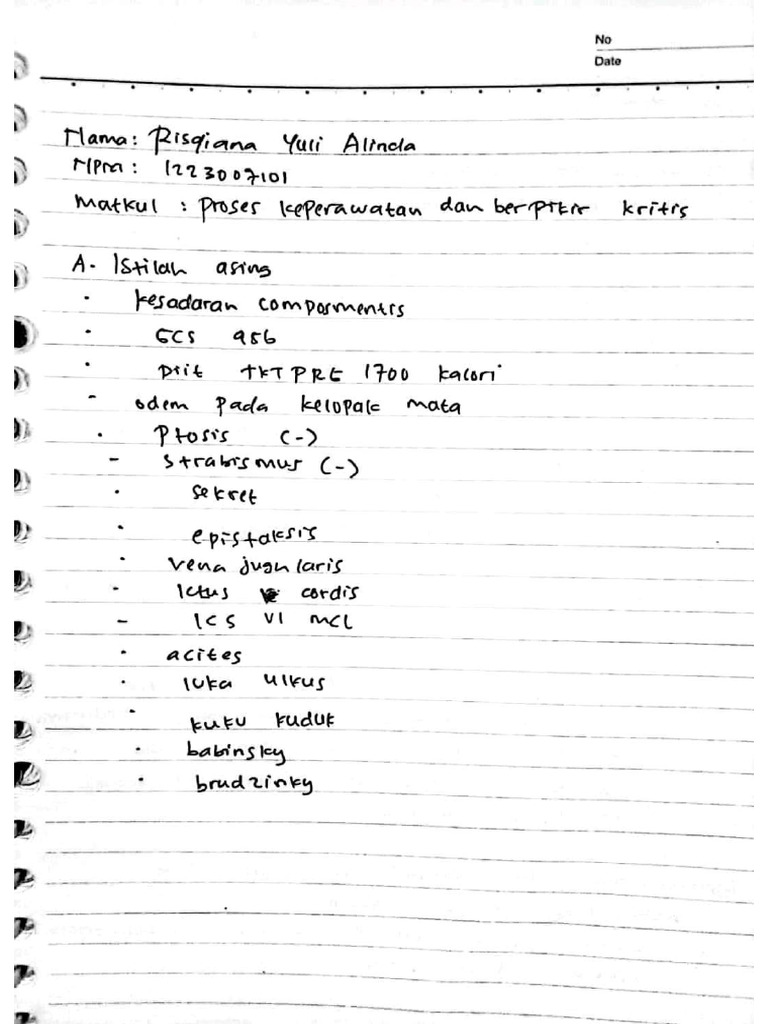 No
Date
Nama: Risqiana Yuli Alinda
NPM : 1223007101
Matkul : proses keperawatan dan berpikir kritis
A. Istilah asing
• kesadaran composmentis
• GCS 456
• Diit TKTPRE 1700 kalori
- odem pada kelopak mata
• Ptosis (-)
- Strabismus (-)
• sekret
• epistaksis
• vena jugularis
• Ictus cordis
- ICS VI MCL
• acites
• luka ulkus
• kuku kuduk
• babinsky
• brudzinky